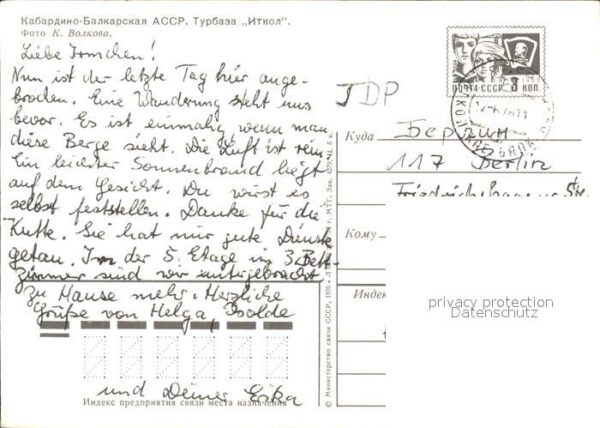 Кабардино-Балкарская АССР. Турбаза „Иткол".
Фото К. Волкова.
Liebe Irmchen!
Nun ist der letzte Tag hier ange-
brochen. Eine Wanderung steht uns
bevor. Es ist einmalig, wenn man
diese Berge sieht. Die Luft ist rein
Ein leichter Sonnenbrand liegt
auf dem Gesicht. Du wirst es
selbst feststellen. Danke für die
Kutte. Sie hat mir gute Dienste
getan. Im der 5. Etage in 3 Bett-
zimmer sind wir untergebracht
Zu Hause mehr. Herzliche
Grüße von Helga, Isolde
und Deiner Erika
Индекс предприятия связи места назначения
© Министерство связи СССР, 1976
ПОЧТА СССР 3 КОП.
ГДР
Куда Берлин
117 Berlin
Кому
Индекс
privacy protection
Datenschutz